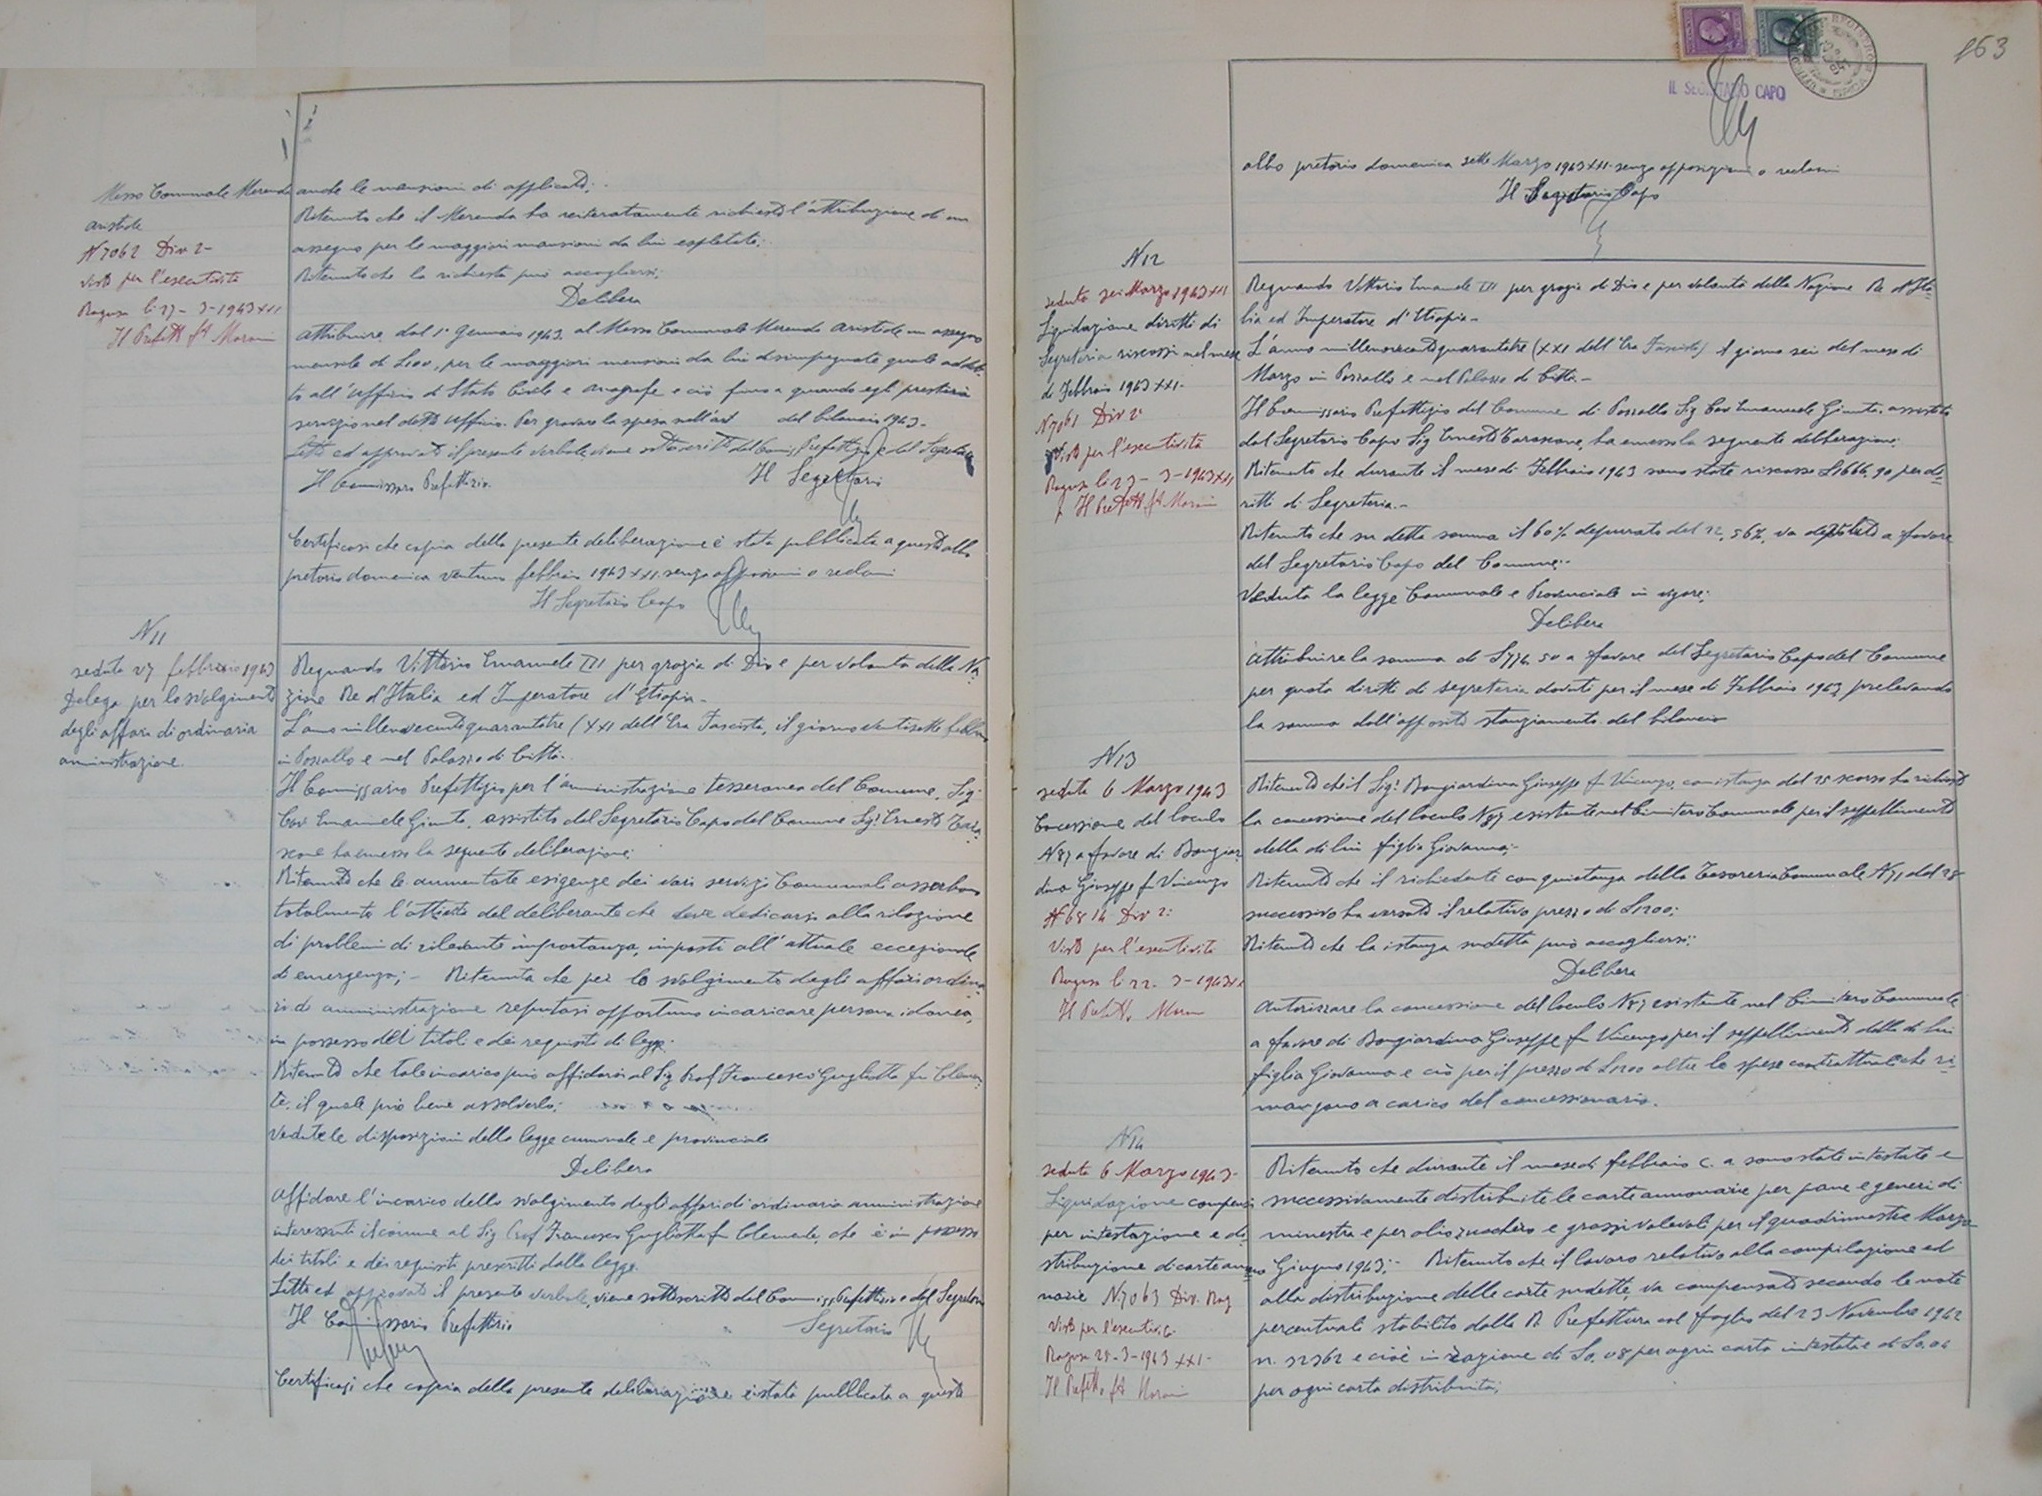 Messo Comunale Merenda
aristide
N 7062 Div 2-
visto per l'esecutività
Ragusa li 27-3-1943 XXI
Il Prefetto f.to Maroni
anche le mansioni di applicato;
Ritenuto che il Merenda ha reiteratamente richiesto l'attribuzione di un
assegno per le maggiori mansioni da lui espletate;
Ritenuto che la richiesta può accogliersi;
Delibera
attribuire dal 1° Gennaio 1943 al Messo Comunale Merenda Aristide un assegno
mensile di L 100, per le maggiori mansioni da lui disimpegnate quale addet-
to all'ufficio di Stato Civile e anagrafe e ciò fino a quando egli presterà
servizio nel detto ufficio. Per gravare la spesa sull'art del bilancio 1943-
Letto ed approvato il presente verbale, viene sottoscritto dal Comiss. Prefettizio e dal Segretario
Il Commissario Prefettizio Il Segretario
Certificasi che copia della presente deliberazione è stata pubblicata a questo albo
pretorio domenica ventuno febbraio 1943 XXI senza opposizioni o reclami
Il Segretario Capo
N 11
seduta 27 febbraio 1943
Delega per lo svolgimento
degli affari di ordinaria
amministrazione
Regnando Vittorio Emanuele III per grazia di Dio e per volontà della Na-
zione Re d'Italia ed Imperatore d'Etiopia-
L'anno millenovecentoquarantatre (XXI dell'Era Fascista, il giorno ventisette febbraio
in Pozzallo e nel Palazzo di Città.-
Il Commissario Prefettizio per l'amministrazione del Comune, Sig.
Cav Emanuele Giunta, assistito dal Segretario Capo del Comune Sig. Ernesto Tara-
scone ha emesso la seguente deliberazione:
Ritenuto che le aumentate esigenze dei vari servizi Comunali assorbono
totalmente l'attività del deliberante che deve dedicarsi alla
di problemi di rilevante importanza, imposti all'attuale eccezionale
di emergenza;- Ritenuto che per lo svolgimento degli affari ordina-
ri di amministrazione reputasi opportuno incaricare persona idonea,
in possesso dei titoli e dei requisiti di legge.
Ritenuto che tale incarico può affidarsi al Sig Prof Francesco Gugliotta fu Clemen-
te, il quale può bene assolverlo;
Vedute le disposizioni della legge comunale e provinciale
Delibera
Affidare l'incarico dello svolgimento degli affari di ordinaria amministrazione
interessanti il comune al Sig Prof Francesco Gugliotta fu Clemente, che è in possesso
dei titoli e dei requisiti prescritti dalla legge.
Letto ed approvato il presente verbale, viene sottoscritto dal Commiss. Prefettizio e dal Segretario
Il Commissario Prefettizio Segretario
Certificasi che copia della presente deliberazione è stata pubblicata a questo
163
IL SEGRETARIO CAPO
albo pretorio domenica sette Marzo 1943 XXI senza opposizioni o reclami
Il Segretario Capo
N 12
seduta sei Marzo 1943 XXI
Liquidazione diritti di
Segreteria riscossi nel mese
di Febbraio 1943 XXI-
N 7061 Div 2°
Visto per l'esecutività
Ragusa li 23-3-1943 XXI
Il Prefetto f.to Maroni
Regnando Vittorio Emanuele III per grazia di Dio e per volontà della Nazione Re d'Ita-
lia ed Imperatore d'Etiopia-
L'anno millenovecentoquarantatre (XXI dell'Era Fascista) il giorno sei del mese di
Marzo in Pozzallo e nel Palazzo di Città.-
Il Commissario Prefettizio del Comune di Pozzallo Sig Cav Emanuele Giunta, assistito
dal Segretario Capo Sig Ernesto Tarascone, ha emesso la seguente deliberazione:
Ritenuto che durante il mese di Febbraio 1943 sono state riscosse L 1666,90 per di-
ritti di Segreteria.-
Ritenuto che su detta somma il 60% depurato del 22,56%, va a favore
del Segretario Capo del Comune;-
Veduta la legge Comunale e Provinciale in vigore;
Delibera
Attribuire la somma di L 774,50 a favore del Segretario Capo del Comune
per quota diritti di segreteria dovuti per il mese di Febbraio 1943 prelevando
la somma dall'apposito stanziamento del bilancio
N 13
seduta 6 Marzo 1943
Concessione del loculo
N 87 a favore di Bongiar-
dina Giuseppe fu Vincenzo
N 6814 Div 2:
Visto per l'esecutività
Ragusa li 22-3-1943 XXI
Il Prefetto Maroni
Ritenuto che il Sig. Bongiardina Giuseppe fu Vincenzo, con istanza del 25 scorso ha richiesto
la concessione del loculo N 87 esistente nel Cimitero Comunale per il seppellimento
della di lui figlia Giovanna;-
Ritenuto che il richiedente con quietanza della Tesoreria Comunale N 71 del 28
successivo ha versato il relativo prezzo di L 1200;
Ritenuto che la istanza sudetta può accogliersi;
Delibera
Autorizzare la concessione del loculo N 87 esistente nel Cimitero Comunale
a favore di Bongiardina Giuseppe fu Vincenzo per il seppellimento della di lui
figlia Giovanna e ciò per il prezzo di L 1200 oltre le spese contrattuali che ri-
mangono a carico del concessionario.
N 14
seduta 6 Marzo 1943-
Liquidazione compensi
per intestazione e di-
stribuzione di carte anno-
narie N 7063 Div. Rag
Visto per l'esecutività
Ragusa 28-3-1943 XXI-
Il Prefetto f.to Maroni
Ritenuto che durante il mese di febbraio c. a sono state intestate e
successivamente distribuite le carte annonarie per pane e generi di
minestra e per olio, zucchero e grassi valevoli per il quadrimestre Marzo
Giugno 1943;- Ritenuto che il lavoro relativo alla compilazione ed
alla distribuzione delle carte sudette, va compensato secondo le note
percentuali stabilite dalla R. Prefettura col foglio del 23 Novembre 1942
n. 32362 e cioè in ragione di L 0,08 per ogni carta intestata e di L 0,04
per ogni carta distribuita;